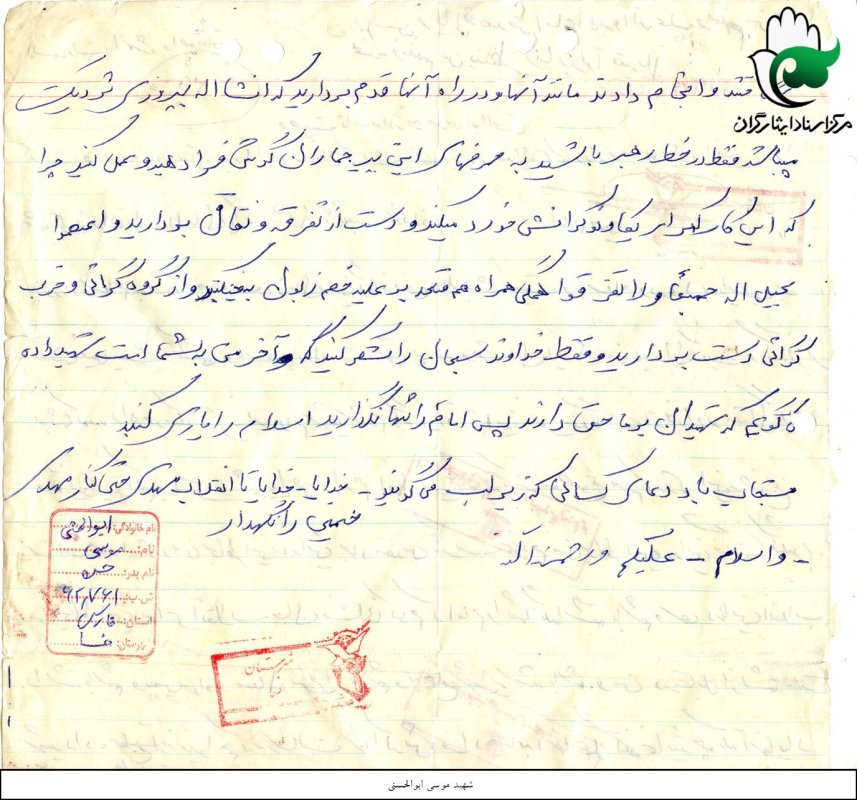 مرکز اسناد ایثارگران
رفتند و انجام دادند مانند آنها و در راه آنها قدم بردارید که انشا اله پیروزی نزدیک
میباشد فقط در خط رهبر باشید به حرفهای این پیر جماران گوش فرا دهید و عمل کنید چرا
که این کار کمر امریکا و نوکرانش خورد میکند و دست از تفرقه و نفاق بردارید و اعتصموا
بحبل اله جمیعا و لا تفرقوا همگی همراه هم متحد بر علیه خصم زبون بجنگید و از گروه گرائی و حزب
گرائی دست بردارید و فقط خداوند سبحان را شکر کنید و آخر من بشما امت شهید داده
گویم که شهیدان بر ما حق دارند پس امام را تنها نگذارید اسلام را یاری کنید
مستجاب باد دعای کسانی که زیر لب می گویند - خدایا - خدایا تا انقلاب مهدی حتی کنار مهدی
خمینی را نگهدار
- والسلام - علیکم و رحمة اله
نام خانوادگی: ابوالحسنی
نام: موسی
نام پدر: حسن
ش پ: ۶۲۸۷۶۱
استان: فارس
شهرستان: فسا
شهرستان
فسا
شهید موسی ابوالحسنی